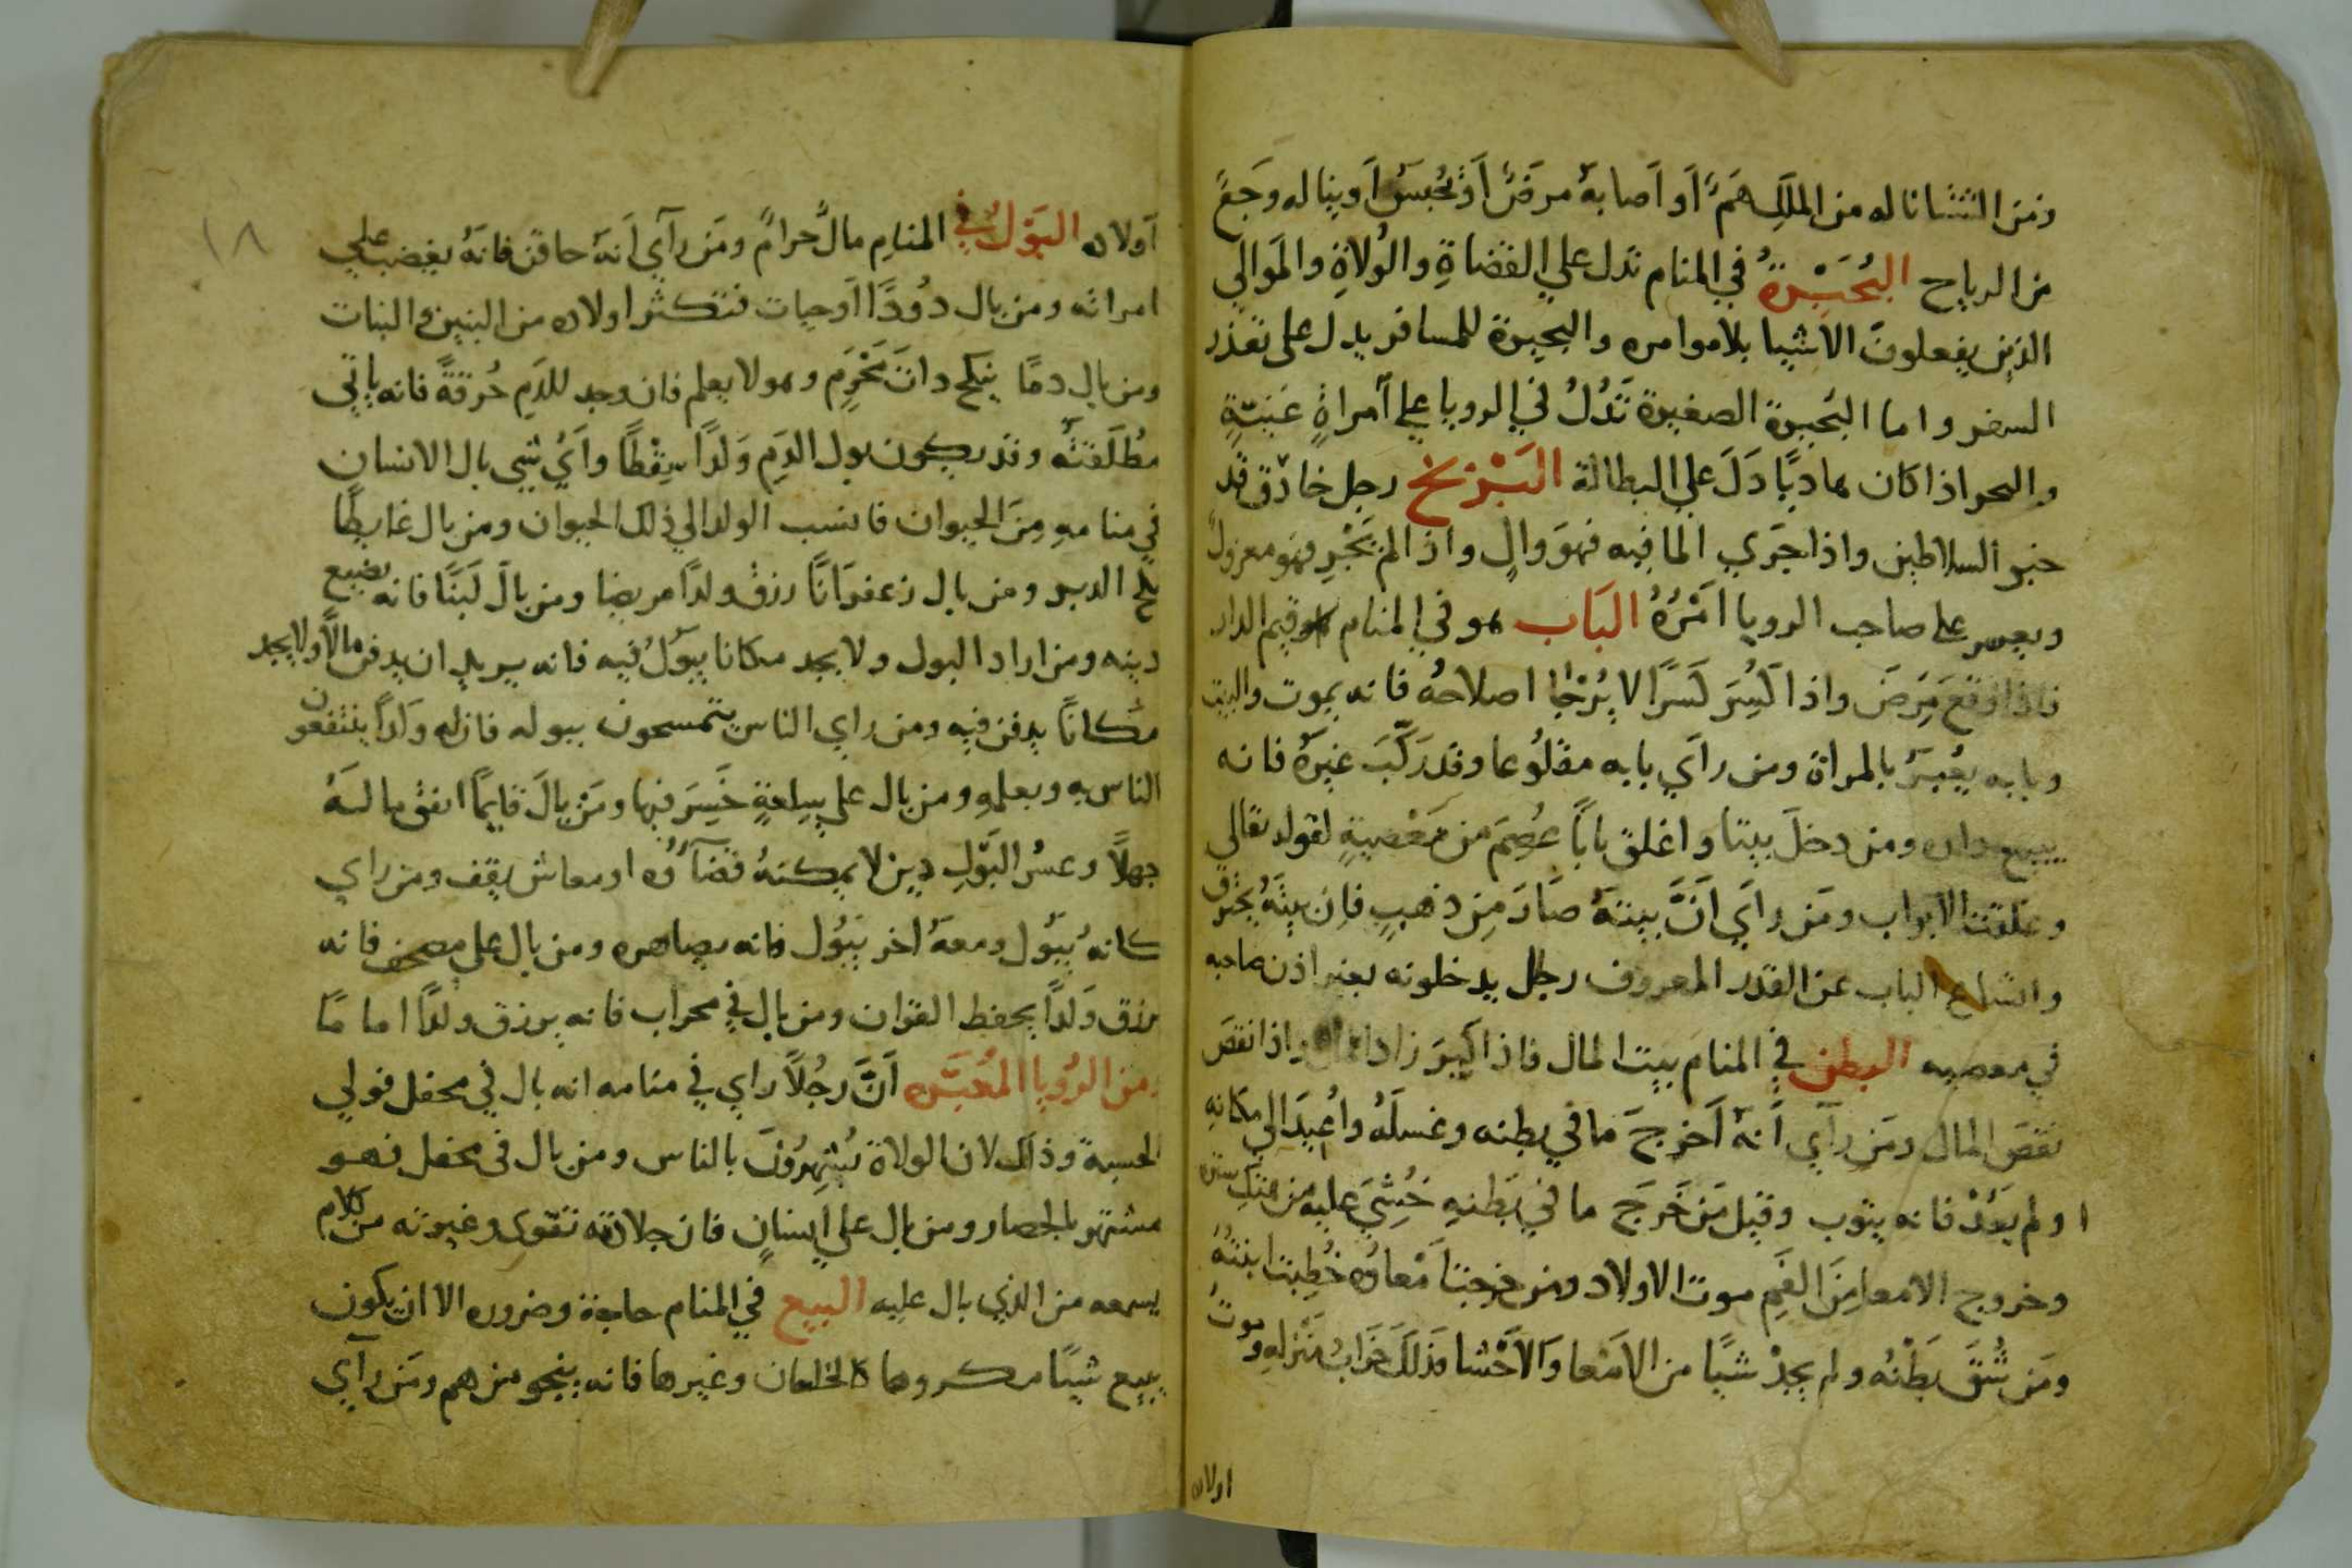 ومن انتشا ناله من الملك هَمٌّ أو أصابهُ مرضٌ أوْ حُبسَ أو يناله وَجَعٌ
من الرياح البُحَيْرةُ في المنام تدل على القضاةِ والوُلاةِ والمَوالي
الذين يفعلون الاشيا بلاموامره والبحيرة للمسافر يدل على تعذر
السفر واما البُحيرة الصغيرة تَدُلُ في الرويا على أمراةٍ غنيّةٍ
والبحر اذا كان هاديًا دَلَ على البطالة البَرْبَخ رجل حاذق قد
خبر السلاطين واذا جَرَي الما فيه فهوَ والٍ واذا لمْ يَجْرِ فهو معزولٌ
ويعسر على صاحب الرويا امْرُهُ البَاب هو في المنام قيم الدار
فاذا وقع مَرِضَ واذا كُسِرَ كَسرًا لا يُرْجَا اصلاحُه فانه يموت والبيت
وبابه يُعبَرُ بالمراة ومن رأي بابه مقلُوعا وقد رَكَّبَ غيرَهُ فانه
يبيع داره ومن دخلَ بيتا واغلق بابًا عُصِمَ من مَعْصيةٍ لقوله تعالي
وغلقت الابواب ومَن رأَي انَّ بيتهُ صَارَ مِن ذهبٍ فاِن بيتَهُ يحترق
واتساع الباب عن القدر المعروف رجل يدخلونه بغير اذن صاحبه
في معصيه البطن في المنام بيت المال فاذا كبِرَ زاد المال واذا نقصَ
نقصَ المال ومَن رأي أنهُ أخرجَ مَا في بطنه وغسلَهُ واُعِيدَ الي مكانِهِ
اولم يَعُدْ فانه يتوب وقيل مَن خَرَجَ ما في بَطنهِ خُشِيَ عليه من هتكِ ستره
وخروج الامعا مِنَ الفَمِ موت الاولاد ومن خرجت أمْعاوُه خُطِبت ابنتُهُ
ومَن شُقَ بَطْنُه ولم يجدْ شيًا من الامَعا وَالأحْشا فذلكَ خَرابُ مَنْزلِهِ وموتُ
اولاده
١٨
أولاده البَوْلُ في المنامِ مالٌ حرامٌ ومَن رأي أنهُ حاقن فانهُ يغضب علي
امراته ومن بال دُودًا أو حيات فتكثر اولاده من البنين والبنات
ومن بال دمًا ينكح ذاتَ مَحْرَمِ وهو لا يعلم فان وجد للدَمِ حُرقةً فانه ياتي
مُطلَقتهُ وقد يكون بول الدَمِ وَلدًا سِقْطًا وأيُ شي بال الانسان
في منامهِ مِنَ الحيوان فانسب الولد الي ذلك الحيوان ومن بال غايطًا
نكح الدبر ومن بال زعفرَانًا رزقَ ولدًا مريضا ومن بالَ لَبَنًا فانه يضيع
دينه ومن اراد البول ولا يجد مكانا يبوّلُ فيه فانه يريد ان يدفن مالًا ولا يجد
مكانًا يدفن فيه ومن راي الناس يتمسحون ببوله فان له وَلدًا ينتفعون
الناس به وبعلمهِ ومن بال علي سِلعةٍ خَسِرَ فيها ومَن بالَ قايمًا انفق مالهُ
جهلاً وعسُر البَوْلِ دين لا يمكنهُ قضآؤه او معاش يقف ومن راي
كانهُ يبُول ومعهُ اخر يبُول فانه يصاهره ومن بال علي مصحف فانه
يرزق وَلدًا يحفظ القران ومن بال في محراب فانه يرزق ولدًا امامًا
ومن الرُويا المُعَبَّره اَنَّ رجُلاً راي في منامه انه بال في محفل فولي
الحسبة وذلك لان الولاة يُشهِرُونَ بالناس ومن بال في محفل فهو
مشتهر بالحصار ومن بال علي إنسانٍ فان جلادته تقوى وغيرته من كلام
يسمعه من الذي بال عليه البيع في المنام حاجة وضروره الا ان يكون
يبيع شيًا مكروها كالخلعان وغيرها فانه ينجو من هم ومَن رآي